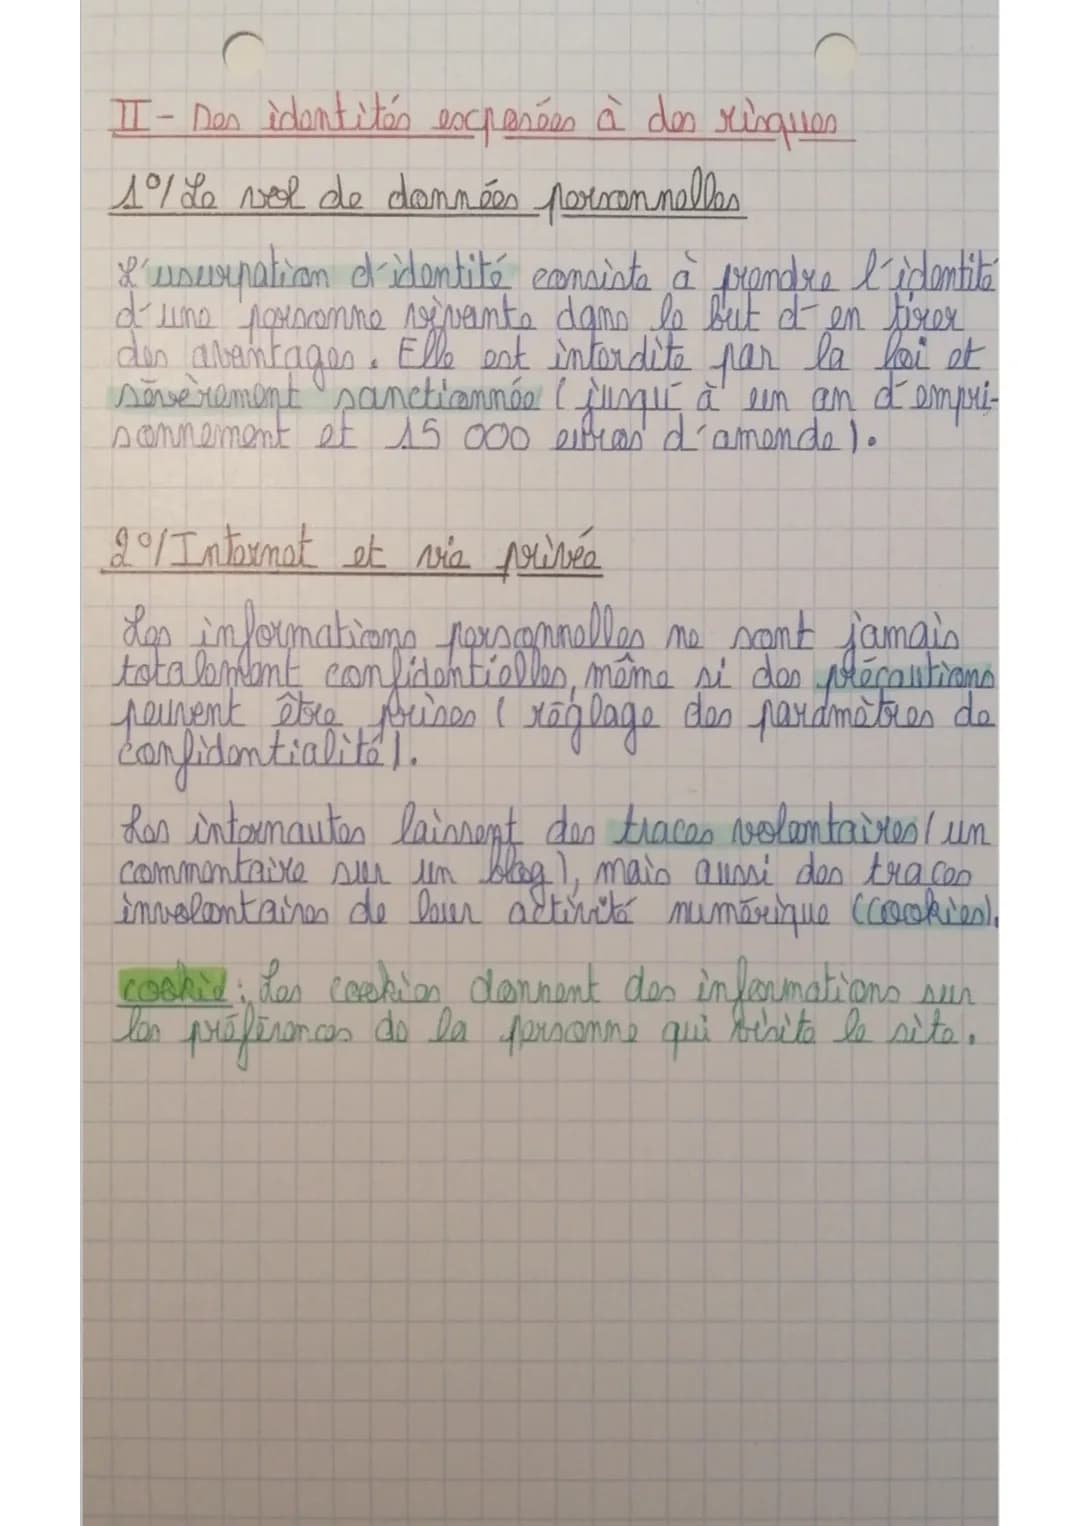 II - Des identités exposées à des risques
1°/ Le vol de données personnelles
L'usurpation d'identité consiste à prendre l'identité
d'une personne vivante dans le but d'en tirer
des avantages. Elle est interdite par la loi et
sévèrement sanctionnée (jusqu'à un an d'empri-
sonnement et 15 000 euros d'amende).
2°/ Internet et vie privée
Les informations personnelles ne sont jamais
totalement confidentielles, même si des précautions
peuvent être prises (réglage des paramètres de
confidentialité).
Les internautes laissent des traces volontaires (un
commentaire sur un blog), mais aussi des traces
involontaires de leur activité numérique (cookies).
cookie : Les cookies donnent des informations sur
les préférences de la personne qui visite le site.